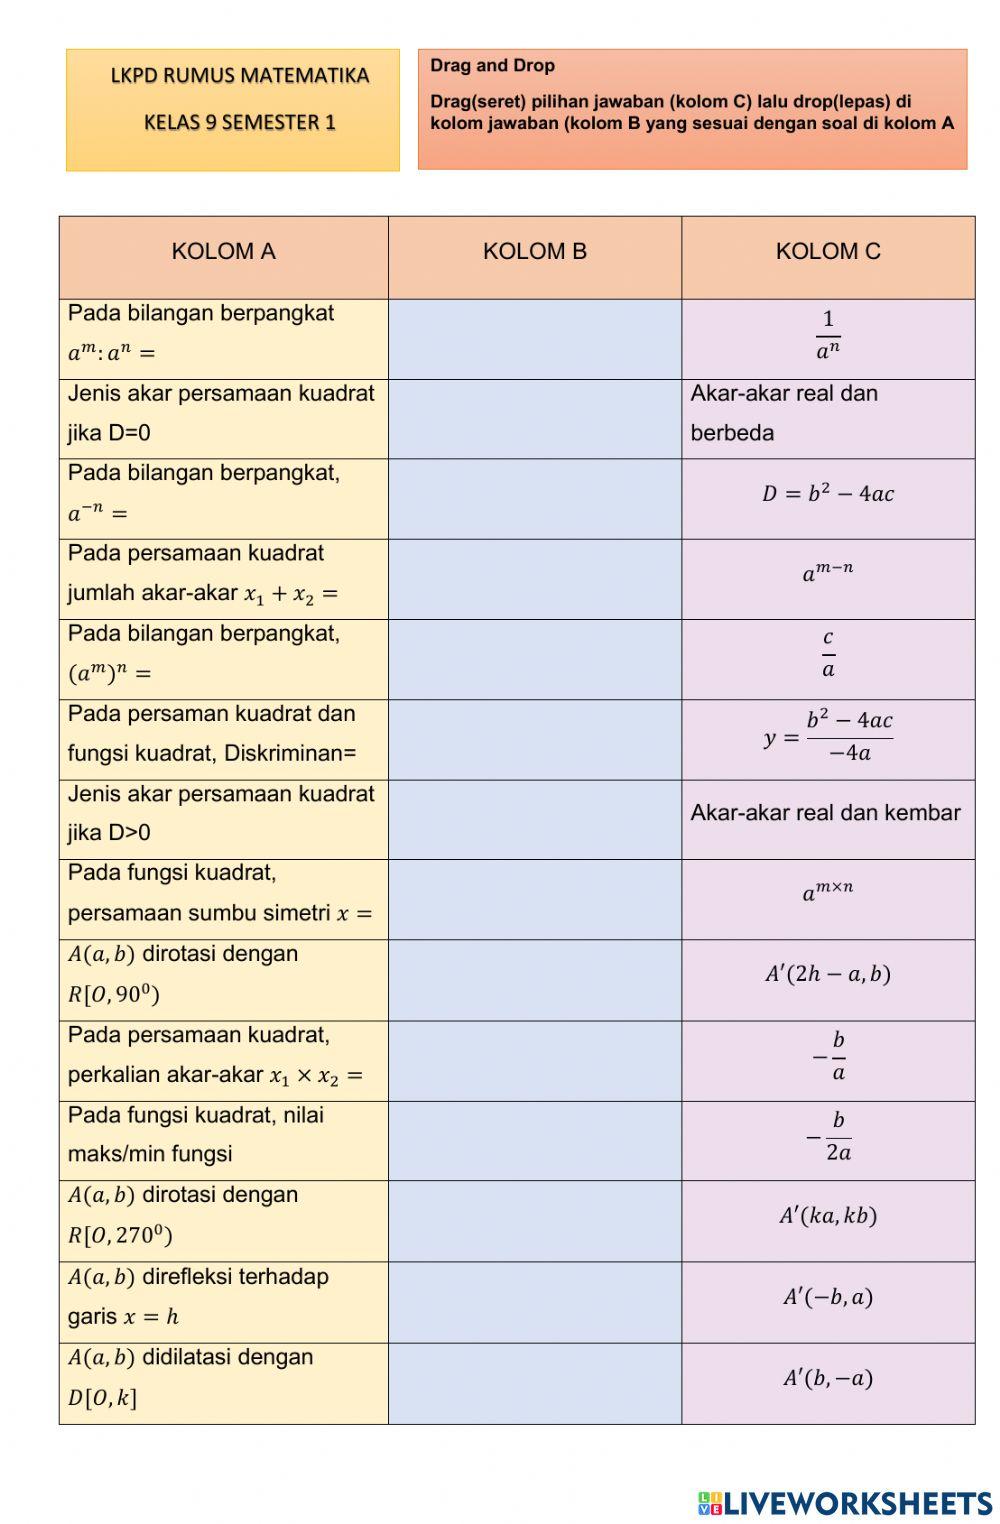 LKPD RUMUS MATEMATIKA
KELAS 9 SEMESTER 1
Drag and Drop
Drag(seret) pilihan jawaban (kolom C) lalu drop(lepas) di
kolom jawaban (kolom B yang sesuai dengan soal di kolom A
KOLOM A
KOLOM B
KOLOM C
Pada bilangan berpangkat
aᵐ: aⁿ =
1/aⁿ
Jenis akar persamaan kuadrat
jika D=0
Akar-akar real dan
berbeda
Pada bilangan berpangkat,
a⁻ⁿ =
D = b² − 4ac
Pada persamaan kuadrat
jumlah akar-akar x₁ + x₂ =
aᵐ⁻ⁿ
Pada bilangan berpangkat,
(aᵐ)ⁿ =
c/a
Pada persaman kuadrat dan
fungsi kuadrat, Diskriminan=
y = (b² − 4ac)/(−4a)
Jenis akar persamaan kuadrat
jika D>0
Akar-akar real dan kembar
Pada fungsi kuadrat,
persamaan sumbu simetri x =
aᵐˣⁿ
A(a, b) dirotasi dengan
R[O, 90⁰)
A′(2h − a, b)
Pada persamaan kuadrat,
perkalian akar-akar x₁ × x₂ =
−b/a
Pada fungsi kuadrat, nilai
maks/min fungsi
−b/2a
A(a, b) dirotasi dengan
R[O, 270⁰)
A′(ka, kb)
A(a, b) direfleksi terhadap
garis x = h
A′(−b, a)
A(a, b) didilatasi dengan
D[O, k]
A′(b, −a)
LIVE LIVEWORKSHEETS